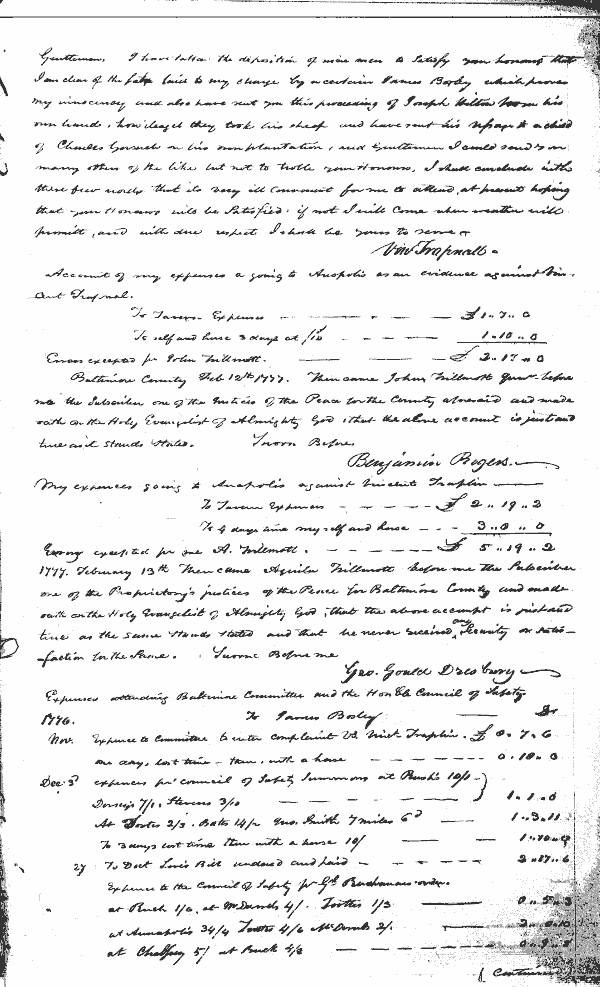 Gentlemen. I have taken the deposition of nine men to satisfy your honours that
I am clear of the fate laid to my charge by a certain James Bosley which proves
my innocency and also have sent you this proceeding of Joseph his
own hands, how illegel they took his sheap and have sent his to a child
of Charles Gorsuch on his own plantation, and Gentlemen I could send you
many others of the like but not to troble your Honours, I shall conclude with
these few words that its very ill Convenant for me to attend, at present hoping
that your Honours will be Satisfied: if not I will Come when weather will
promitt, and with due respect I shall be yours to serve
Vin Trapnall
Account of my expenses a going to Anapolis as an evidence against Vin-
cent Trapnal.
To Tavern Expenses — £ 1..7..0
To self and horse 3 days at /10 1..10..0
Errors excepted pr John Tillmott. — £ 2..17..0
Baltimore County Feb 12th 1777. Then came John Tillmott before
me the Subscriber one of the Justices of the Peace for the County aforesaid and made
oath on the Holy Evangelist of Almighty God, that the above account is just and
true as it Stands Stated. Sworn Before
Benjamin Rogers.
My expences going to Anapolis against Vincent Traplin
To Tavern Expences — £ 2..19..2
To 4 days time my self and horse — 3..0..0
Errors excepted pr me A. Tillmott. — £ 5..19..2
1777. February 13th Then came Aquila Tillmott before me the Subscriber
one of the Proprietory's justices of the Peace for Baltimore County and made
oath on the Holy Evangelist of Almighty God, that the above accompt is just and
true as the same Stands Stated and that he never received any Security or satis-
faction for the Same. Sworne Before me
Geo. Gould Presbury
Expenses attending Baltimore Committee and the Honble Council of Safety
1776. To James Bosley Dr
Nov. Expence to Committee to enter complaint Vs. Vinct Traplin. £ 0..7..6
one day, lost time — then, with a horse — 0..10..0
Dec 3d expences pr council of Safety Summons at Rush's 10/
Dorsey's 7/1. Stevens 3/10 — 1..1..0
At 2/3. Bates 14/2 Geo. Smith 7 miles 6d — 1..3..11
To 3 days lost time then with a horse 10/ — 1..10..0
27 To Doct Louis Bill and paid — 2..17..6
Expence to the Council of Safety pr Gl Buchanans order.
at Ruck 1/6, at McDaniels 4/. Tootles 1/3 — 0..5..3
at Annapolis 34/4 Tootes 4/6 2/. — 2..0..10
at 5/ at Ruck 4/8 — 0..9..8
(Continued)